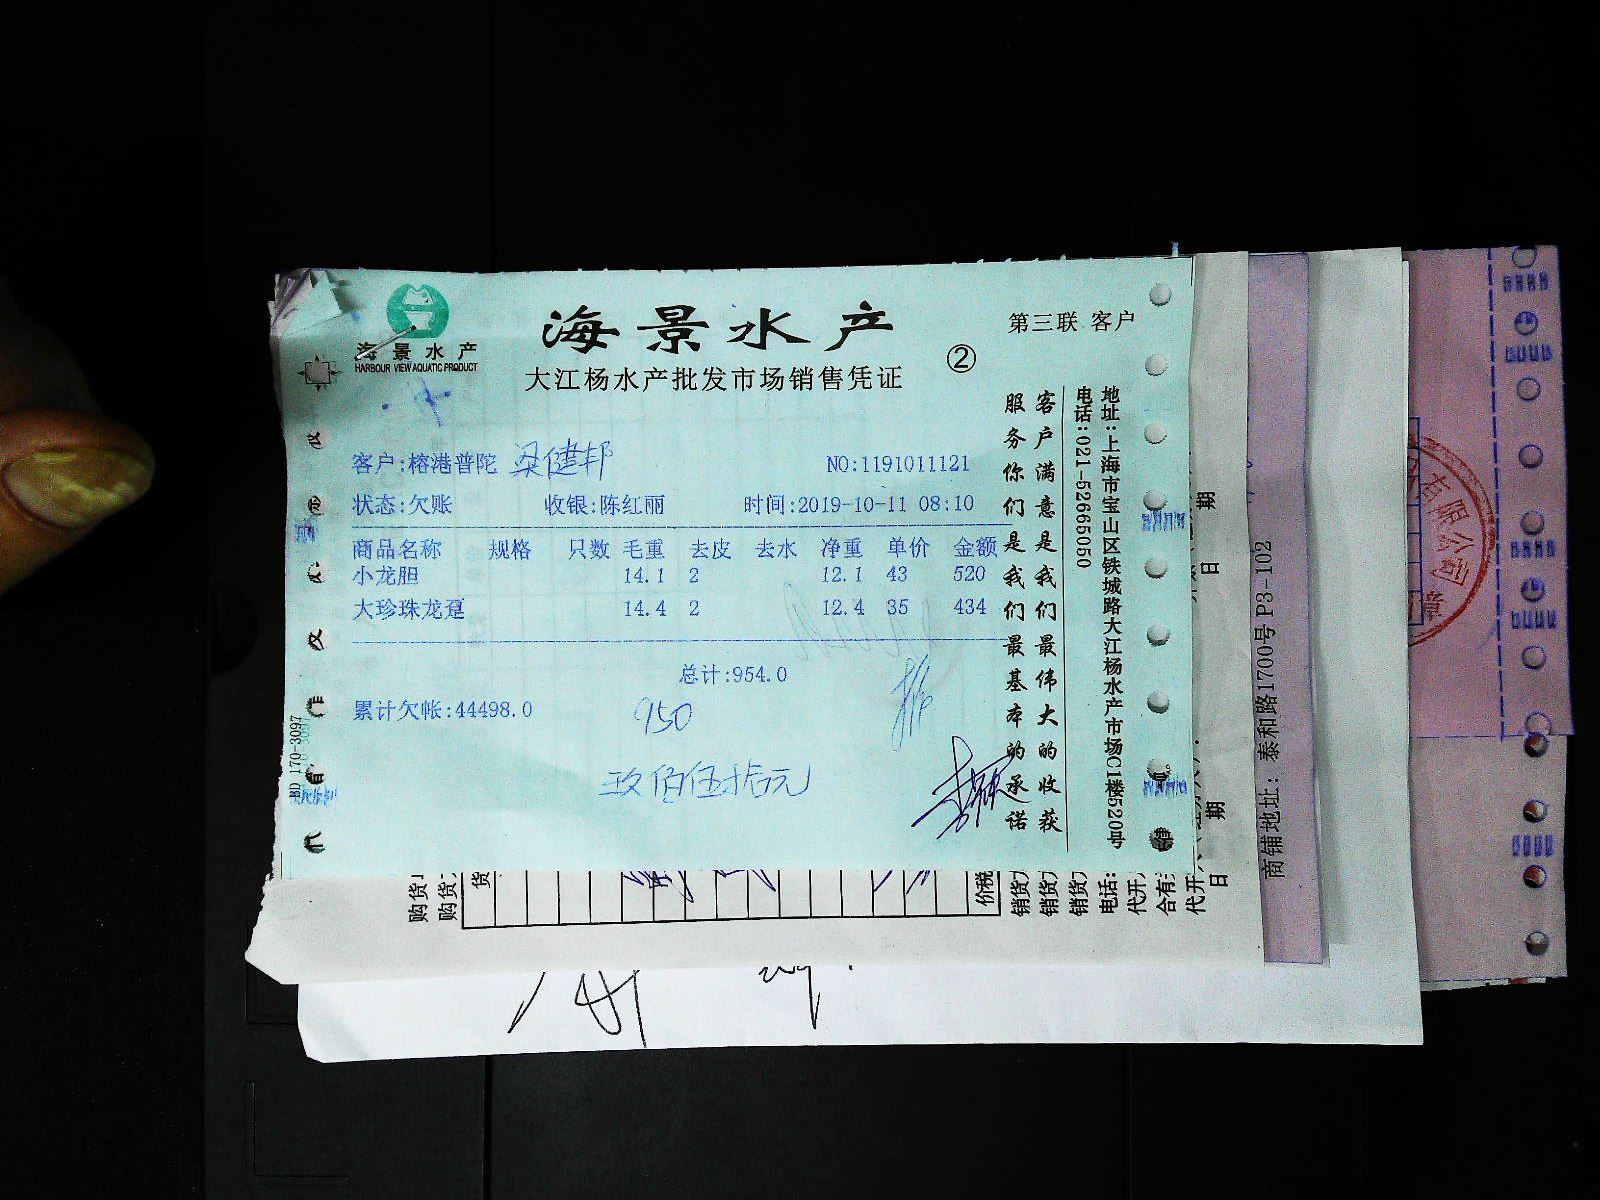 海景水产
HARBOUR VIEW AQUATIC PRODUCT
海景水产
大江杨水产批发市场销售凭证
②
第三联 客户
客户:榕港普陀 梁健邦
NO:1191011121
状态:欠账 收银:陈红丽 时间:2019-10-11 08:10
商品名称 规格 只数 毛重 去皮 去水 净重 单价 金额
小龙胆 14.1 2 12.1 43 520
大珍珠龙趸 14.4 2 12.4 35 434
总计:954.0
累计欠帐:44498.0
950
玖佰伍拾元
客户满意是我们最伟大的收获
服务你们是我们最基本的承诺
地址:上海市宝山区铁城路大江杨水产市场C1楼520号
电话:021-52665050
BD 170-3097
购货
购货
货
价税
销货
销货
销货
电话:
代开
合有
代开
日期
日期
商铺地址:泰和路1700号P3-102
有限公司
章